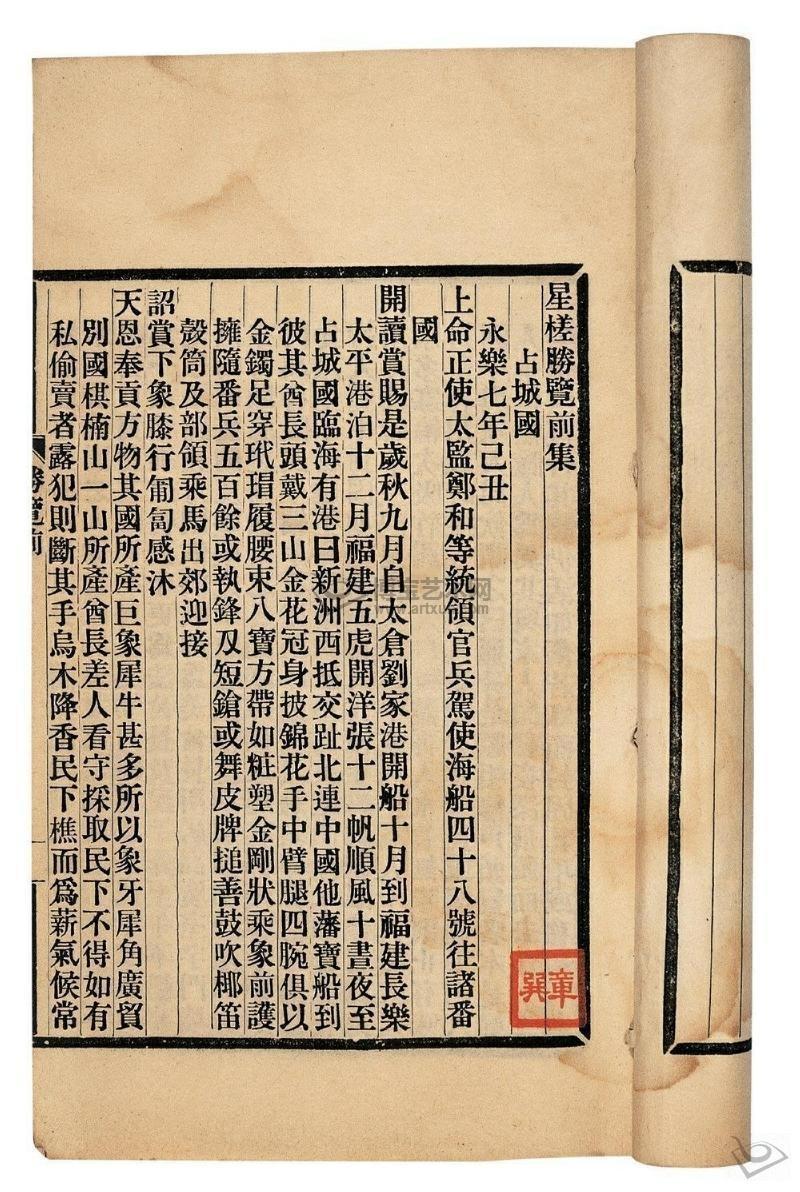 星槎勝覽前集
占城國
永樂七年己丑
上命正使太監鄭和等統領官兵駕使海船四十八號往諸番
國
開讀賞賜是歲秋九月自太倉劉家港開船十月到福建長樂
太平港泊十二月福建五虎開洋張十二帆順風十晝夜至
占城國臨海有港曰新洲西抵交趾北連中國他藩寶船到
彼其酋長頭戴三山金花冠身披錦花手巾臂腿四腕俱以
金鐲足穿玳瑁履腰束八寶方帶如粧塑金剛狀乘象前護
擁隨番兵五百餘或執鋒刃短鎗或舞皮牌搥善鼓吹椰笛
殼筒及部領乘馬出郊迎接
詔賞下象膝行匍匐感沐
天恩奉貢方物其國所產巨象犀牛甚多所以象牙犀角廣貿
別國棋楠山一山所產酋長差人看守採取民下不得如有
私偷賣者露犯則斷其手烏木降香民下樵而爲薪氣候常
勝覽前
一
章巽